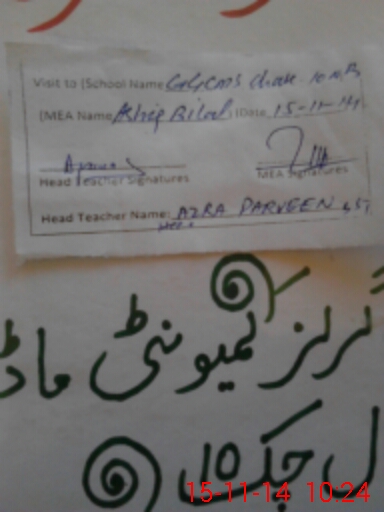 Visit to (School Name GGCMS Chak 10 MB
(MEA Name Bilal (Date 15-11-14
Head Teacher Signatures MEA Signatures
Head Teacher Name: AZRA PARVEEN
گرلز کمیونٹی ماڈ
ل چک 10
15-11-14 10:24